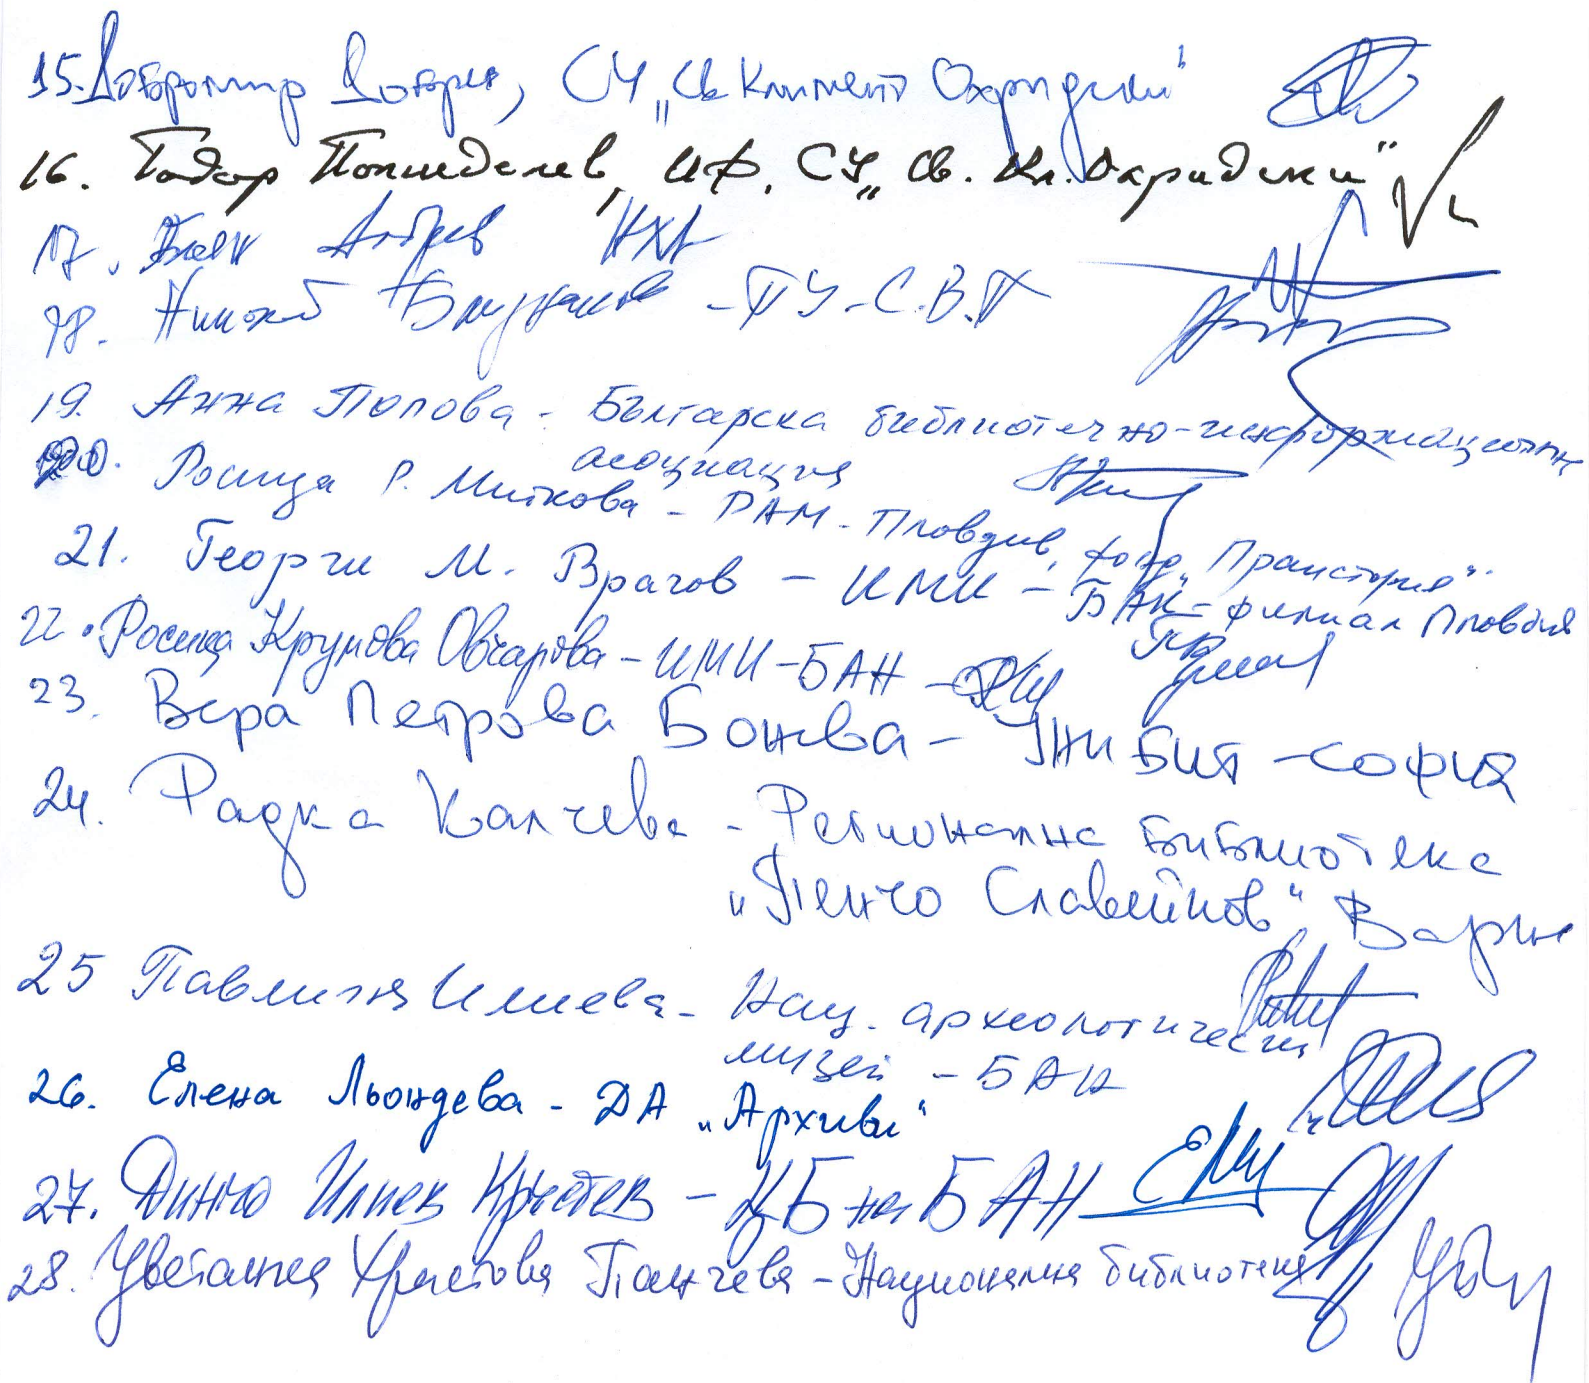 15. Добромир Добрев, СУ „Св Климент Охридски“
16. Тодор Попнеделев, ИФ, СУ „Св. Кл. Охридски“
17. Боян Добрев НХА
18. Николай - ТУ - С.
19. Анна Попова - Българска библиотечно-информационна
асоциация
20. Росица Р. Миткова - РАМ - Пловдив, фонд „Праистория“.
21. Георги М. Врачов - ИМИ - БАН - филиал Пловдив
22. Росица Крумова Овчарова - ИМИ - БАН -
23. Вера Петрова Бонева - УниБИТ - София
24. Радка Калчева - Регионална библиотека
„Пенчо Славейков“, Варна
25 Павлина Илиева - Нац. археологически
музей - БАН
26. Елена Льондева - ДА „Архиви“
27. Динчо Илиев Кръстев - ЦБ на БАН
28. Цветанка Христова Панчева - Национална библиотека